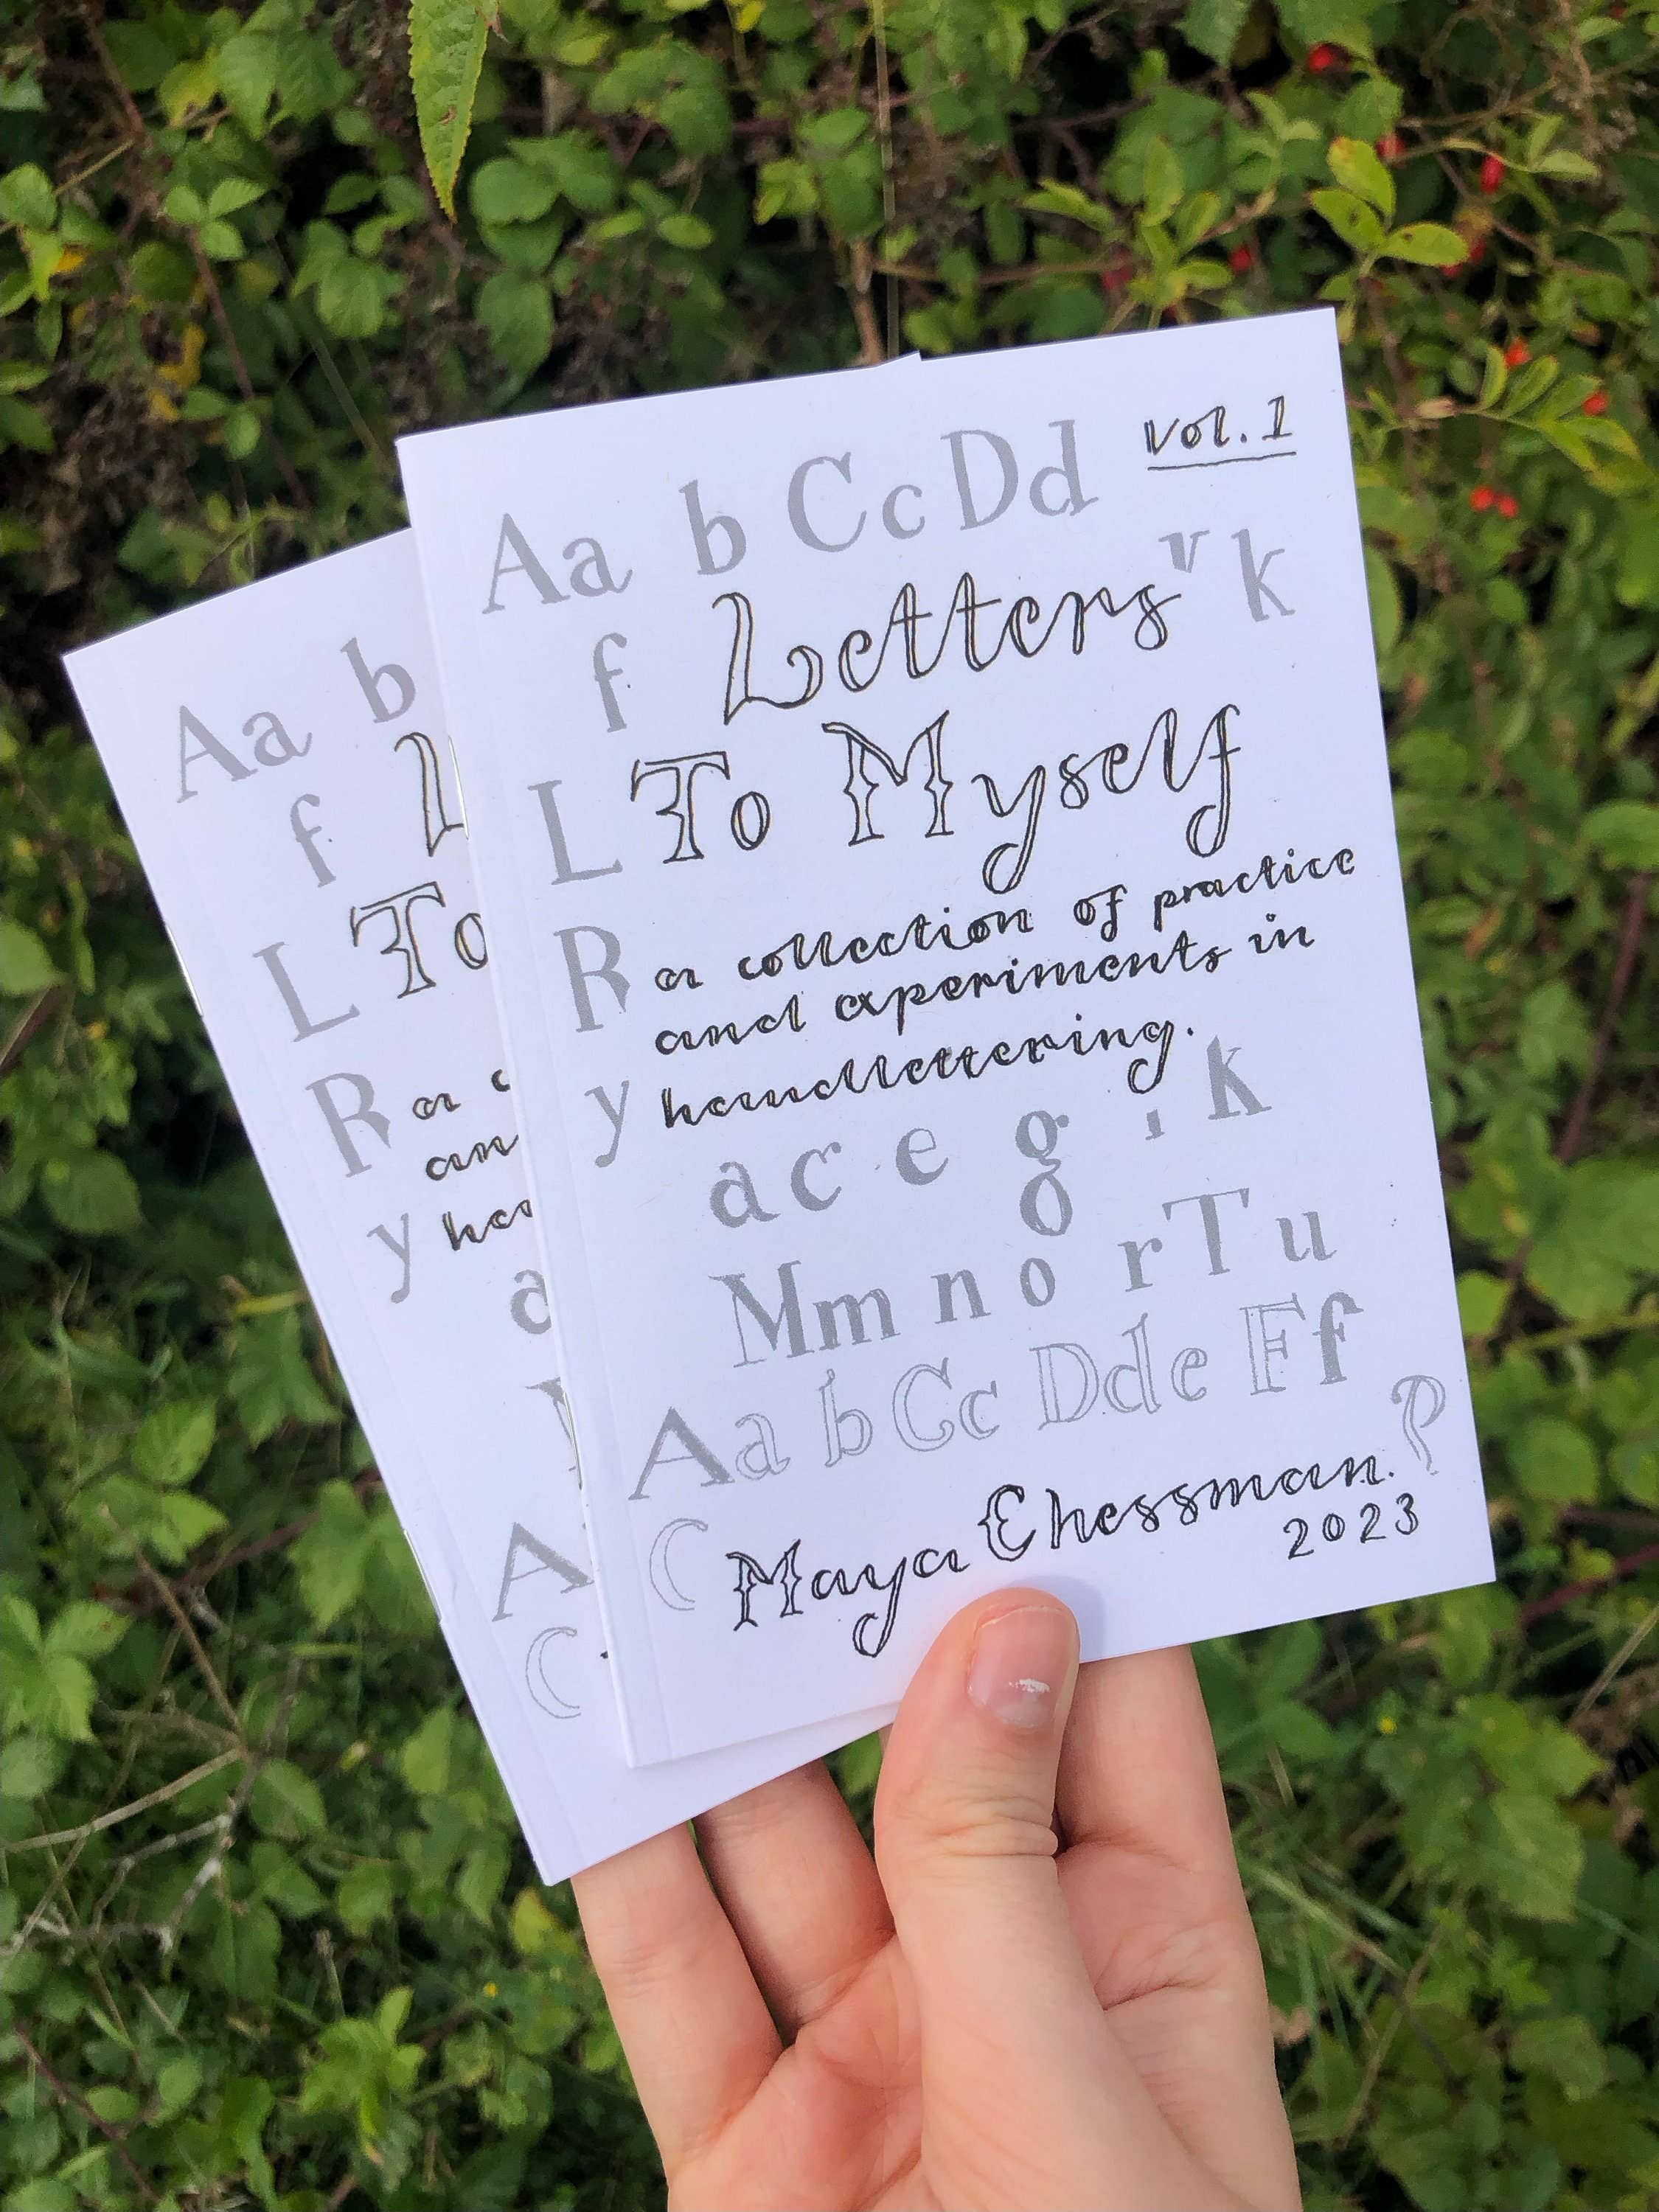 vol. 1
Aa b Cc Dd
f Letters k
L To Myself
R a collection of practice
and experiments in
y handlettering.
a c e g k
o
Mm n o r T u
Aa b Cc Dd e Ff
C Maya Chessman.
2023
Aa b
f L
L To
R a c
an
y ha
a
A
C